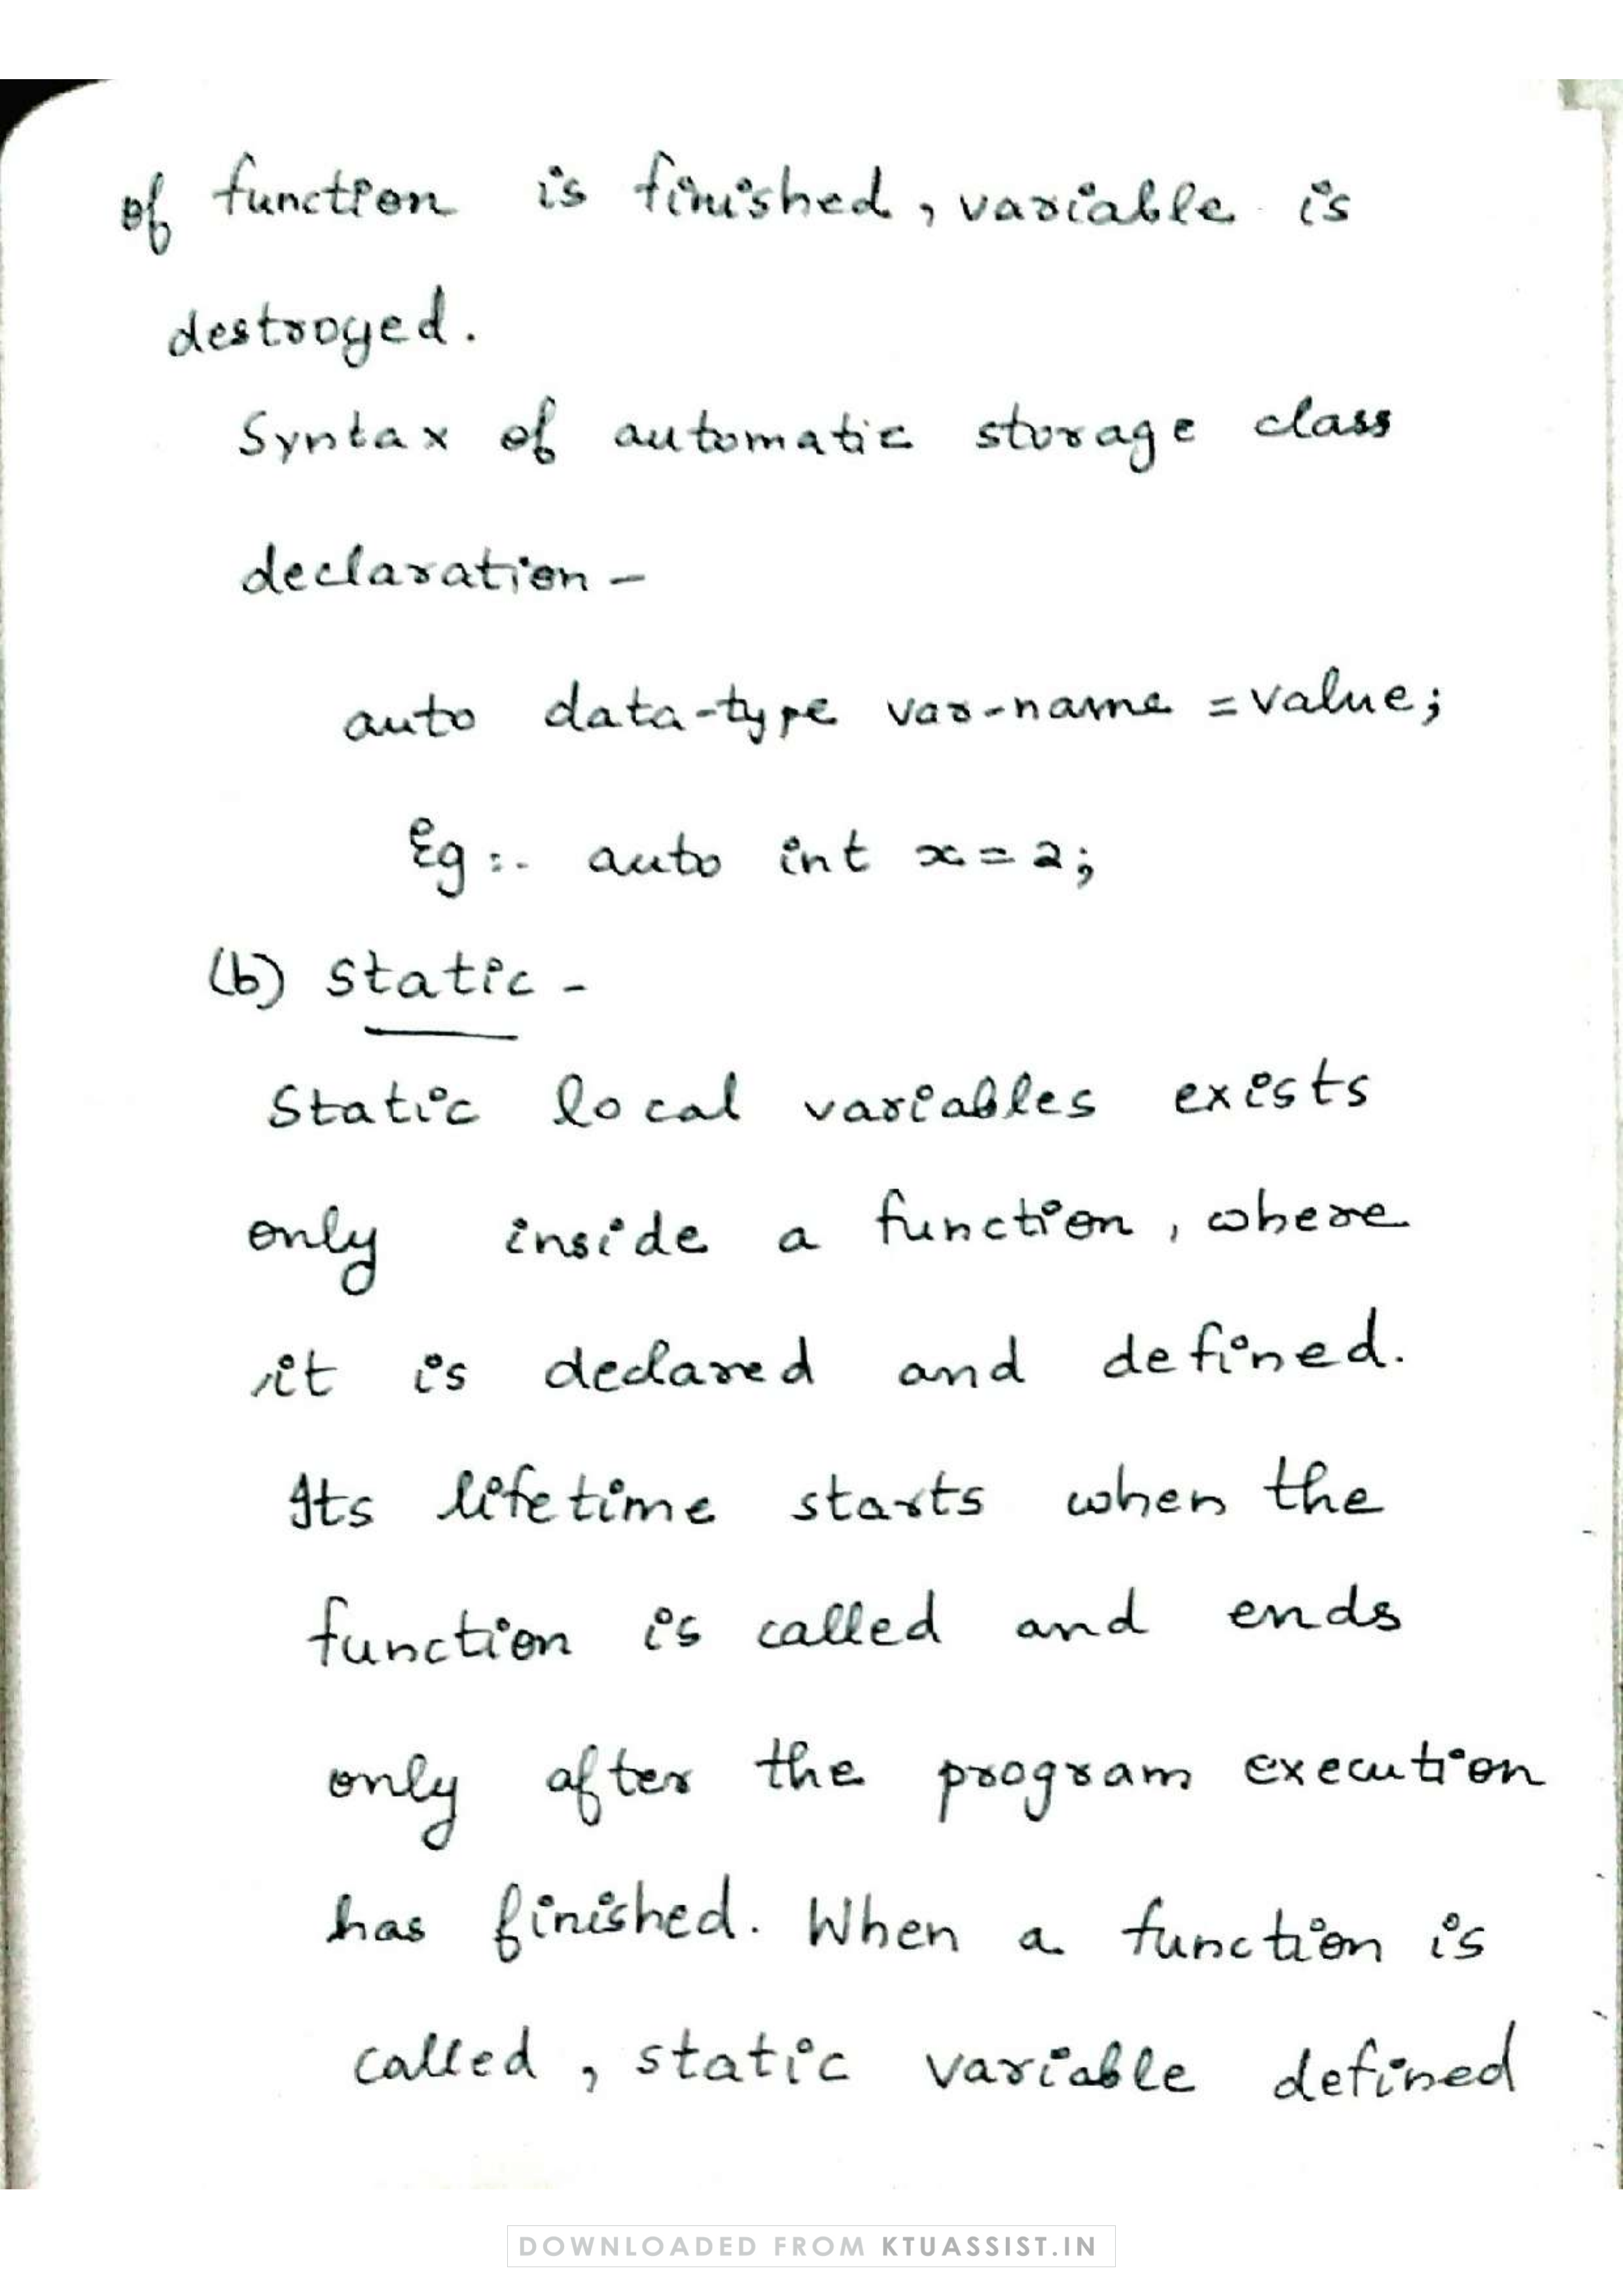 of function is finished, variable is
destroyed.
Syntax of automatic storage class
declaration -
auto data-type var-name = value;
Eg:- auto int x = 2;
(b) Static -
Static local variables exists
only inside a function, where
it is declared and defined.
Its lifetime starts when the
function is called and ends
only after the program execution
has finished. When a function is
called, static variable defined
DOWNLOADED FROM KTUASSIST.IN